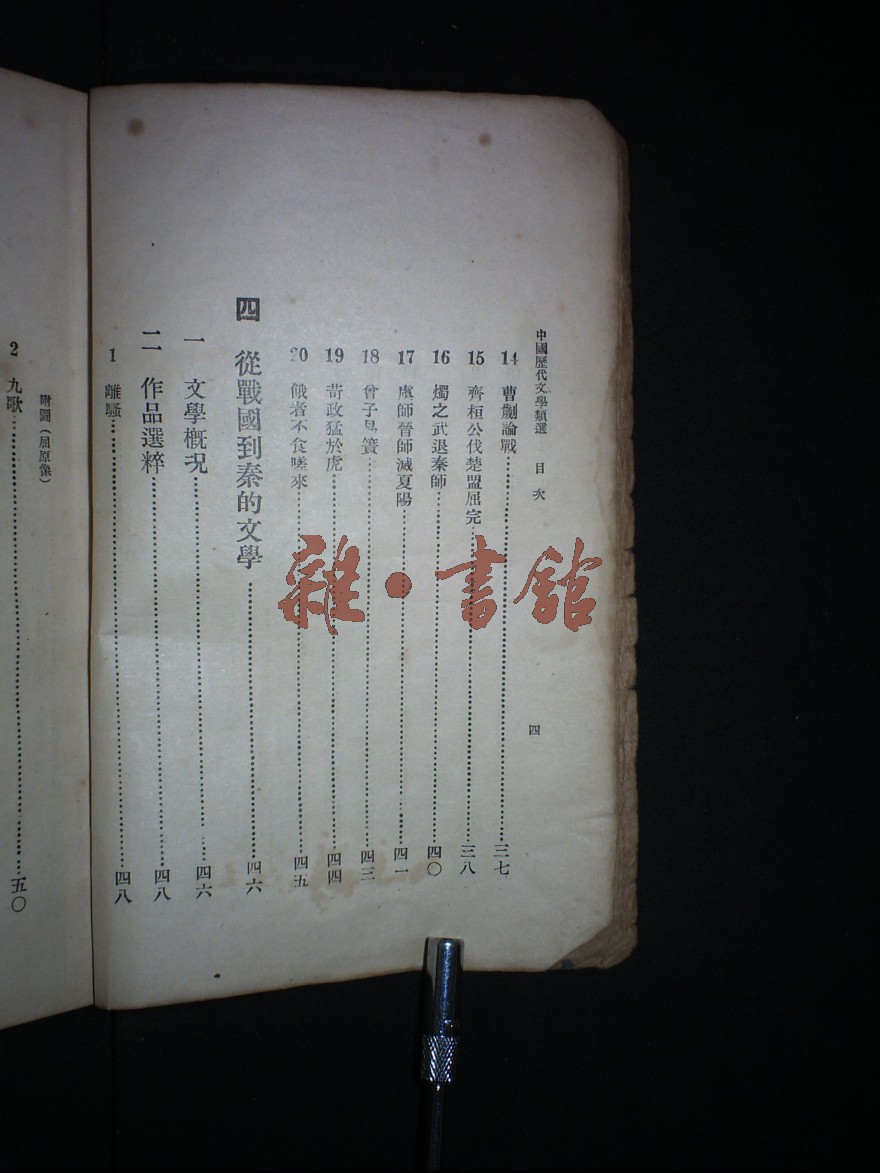 中國歷代文學類選 目次 四
14 曹劌論戰 三七
15 齊桓公伐楚盟屈完 三八
16 燭之武退秦師 四〇
17 虞師晉師滅夏陽 四一
18 曾子易簀 四三
19 苛政猛於虎 四四
20 餓者不食嗟來 四五
四 從戰國到秦的文學 四六
一 文學概況 四六
二 作品選粹 四八
1 離騷 四八
附圖(屈原像)
2 九歌 五〇
雜·書館